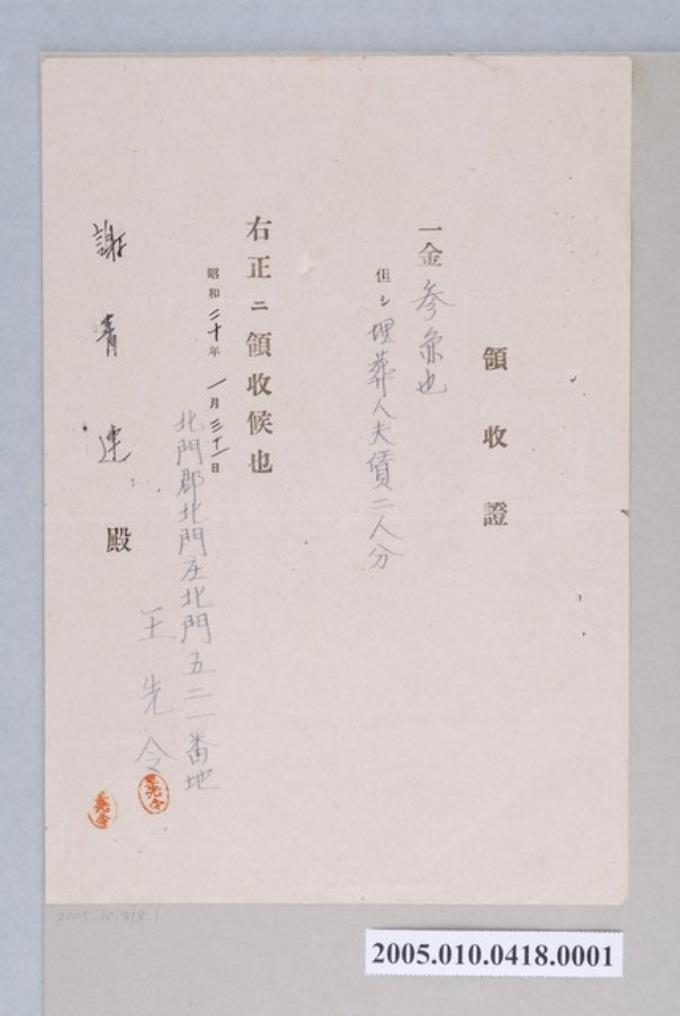 領收證
一金參弗也
但シ埋葬人夫債二人分
右正ニ領收候也
昭和二十年一月三十一日
北門郡北門庄北門五二一番地
王先令
謝青連殿
王先令
2005.10.418.1
2005.010.0418.0001